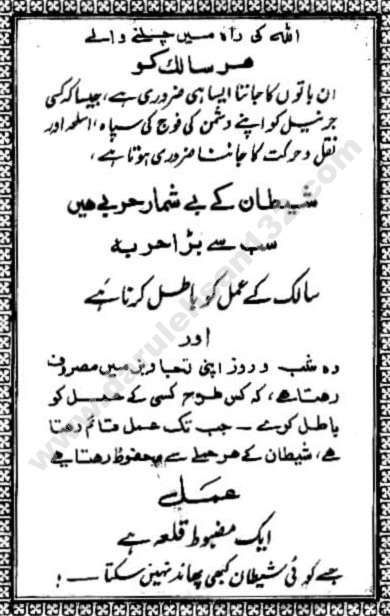 اللہ کی راہ میں چلنے والے
ہر سالک کو
ان باتوں کا جاننا ایسا ہی ضروری ہے، جیسا کہ کسی
جرنیل کو اپنے دشمن کی فوج کی سپاہ، اسلحہ اور
نقل و حرکت کا جاننا ضروری ہوتا ہے،
شیطان کے بے شمار حربے ہیں
سب سے بڑا حربہ
سالک کے عمل کو باطل کرنا ہے
اور
وہ شب و روز اپنی تجاویز میں مصروف
رہتا ہے، کہ کس طرح کسی کے عمل کو
باطل کرے — جب تک عمل قائم رہتا
ہے، شیطان کے ہر حملے سے محفوظ رہتا ہے
عمل
ایک مضبوط قلعہ ہے
جسے کوئی شیطان کبھی پھاند نہیں سکتا — !
www.darulehsan132.com